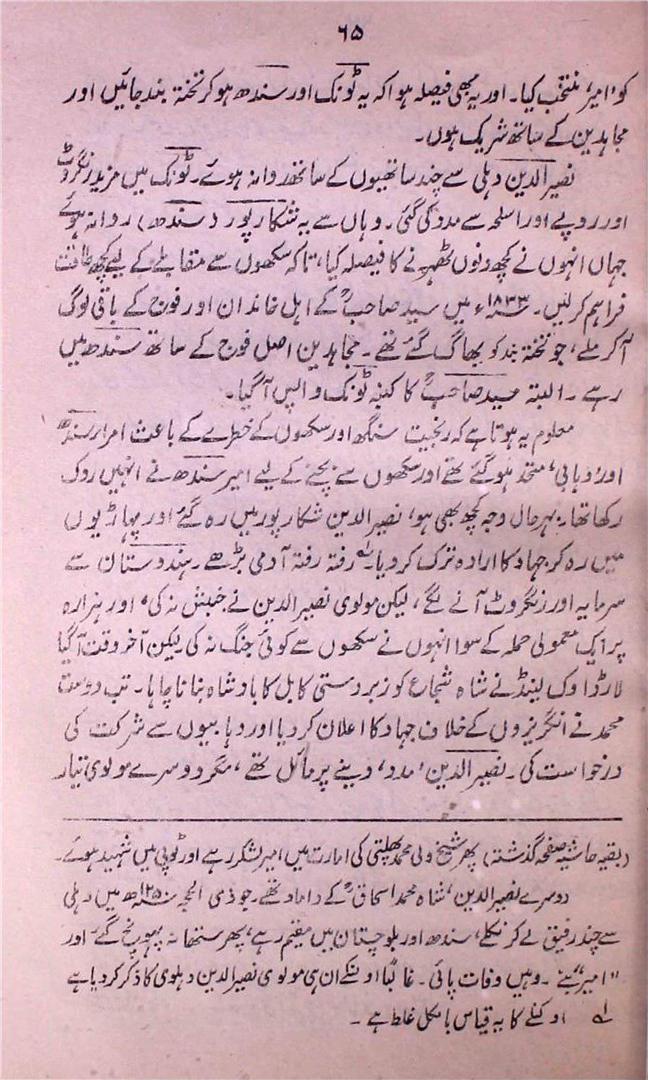 ۶۵
کو 'امیر' منتخب کیا۔ اور یہ بھی فیصلہ ہوا کہ یہ ٹونک اور سندھ ہو کر تختہ بند جائیں اور
مجاہدین کے ساتھ شریک ہوں۔
نصیر الدین دہلی سے چند ساتھیوں کے ساتھ روانہ ہوئے۔ ٹونک میں مزید رنگروٹ
اور روپے اور اسلحہ سے مدد کی گئی۔ وہاں سے یہ شکارپور (سندھ) روانہ ہوئے
جہاں انہوں نے کچھ دنوں ٹھہرنے کا فیصلہ کیا، تاکہ سکھوں سے مقابلے کے لیے کچھ طاقت
فراہم کر لیں۔ ۱۸۳۳ء میں سید صاحبؒ کے اہل خاندان اور فوج کے باقی لوگ
آ کر ملے، جو تختہ بند کو بھاگ گئے تھے۔ مجاہدین اصل فوج کے ساتھ سندھ میں
رہے۔ البتہ سید صاحبؒ کا کنبہ ٹونک واپس آ گیا۔
معلوم یہ ہوتا ہے کہ رنجیت سنگھ اور سکھوں کے خطرے کے باعث امرار سندھ
اور 'وہابی' متحد ہو گئے تھے اور سکھوں سے بچنے کے لیے امیر سندھ نے انہیں روک
رکھا تھا، بہرحال وجہ کچھ بھی ہو، نصیر الدین شکارپور میں رہ گئے اور پہاڑیوں
میں رہ کر جہاد کا ارادہ ترک کر دیا۔ رفتہ رفتہ آدمی بڑھے۔ ہندوستان سے
سرمایہ اور رنگروٹ آنے لگے، لیکن مولوی نصیر الدین نے جنبش نہ کی، اور ہزارہ
پر ایک معمولی حملہ کے سوا انہوں نے سکھوں سے کوئی جنگ نہ کی لیکن آخر وقت آ گیا
لارڈ اوک لینڈ نے شاہ شجاع کو زبردستی کابل کا بادشاہ بنانا چاہا۔ تب دوست
محمد نے انگریزوں کے خلاف جہاد کا اعلان کر دیا اور وہابیوں سے شرکت کی
درخواست کی۔ نصیر الدین 'مدد' دینے پر مائل تھے، مگر دوسرے مولوی تیار
(بقیہ حاشیہ صفحہ گذشتہ) پھر شیخ ولی محمد پھلتی کی امارت میں امیر لشکر رہے اور ٹوپی میں شہید ہوئے۔
دوسرے نصیر الدین، شاہ محمد اسحاقؒ کے داماد تھے۔ جو ذی الحجہ ۱۲۵۰ھ میں دہلی
سے چند رفیق لے کر نکلے، سندھ اور بلوچستان میں مقیم رہے، پھر ستھانہ پہونچ گئے۔ اور
"امیر" بنے۔ وہیں وفات پائی۔ غالباً اونکے ان ہی مولوی نصیر الدین دہلوی کا ذکر کر دیا ہے
لہ اوکنلے کا یہ قیاس بالکل غلط ہے۔